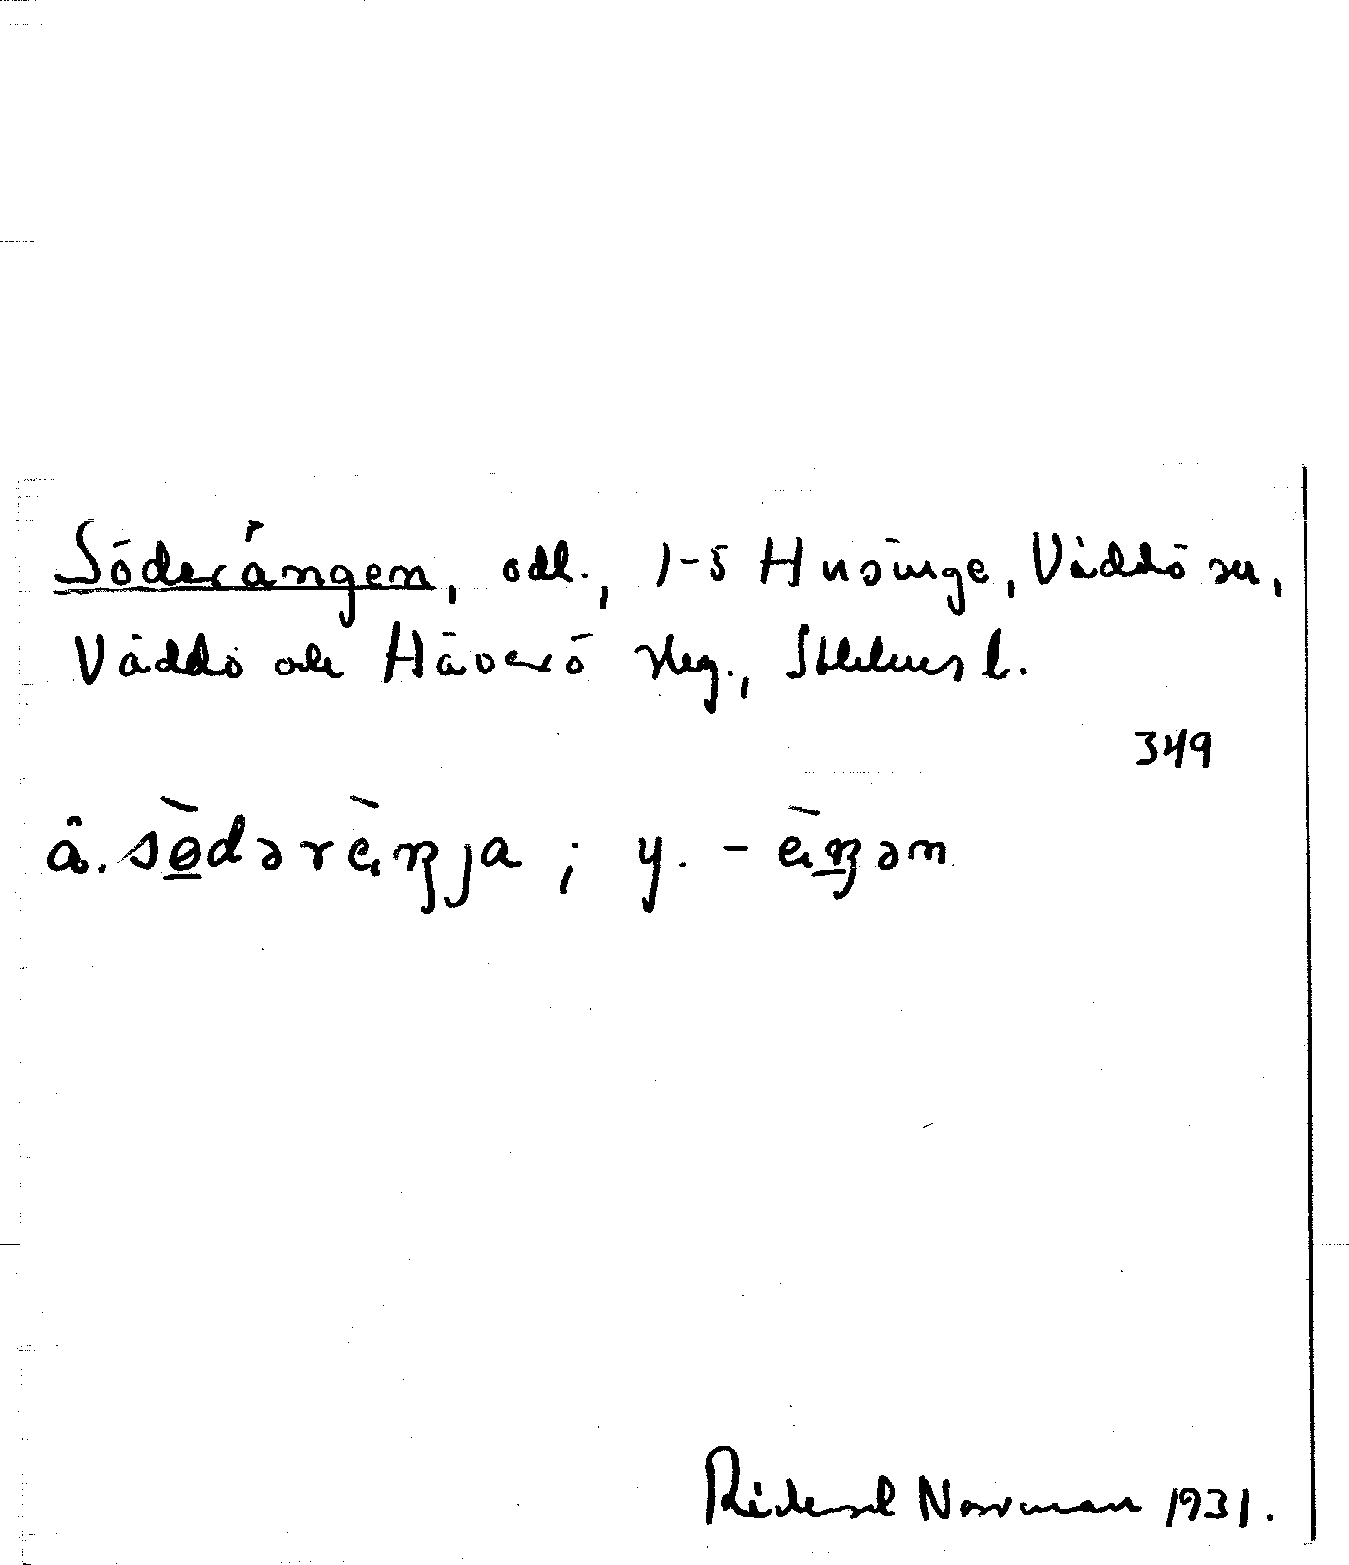 Söderängen, odl., 1-5 Husinge, Väddö sn,
Väddö och Häverö skg., Sthlms l.
349
â. sø̀dərèŋja ; y. - èŋən
Rickard Norrman 1931.